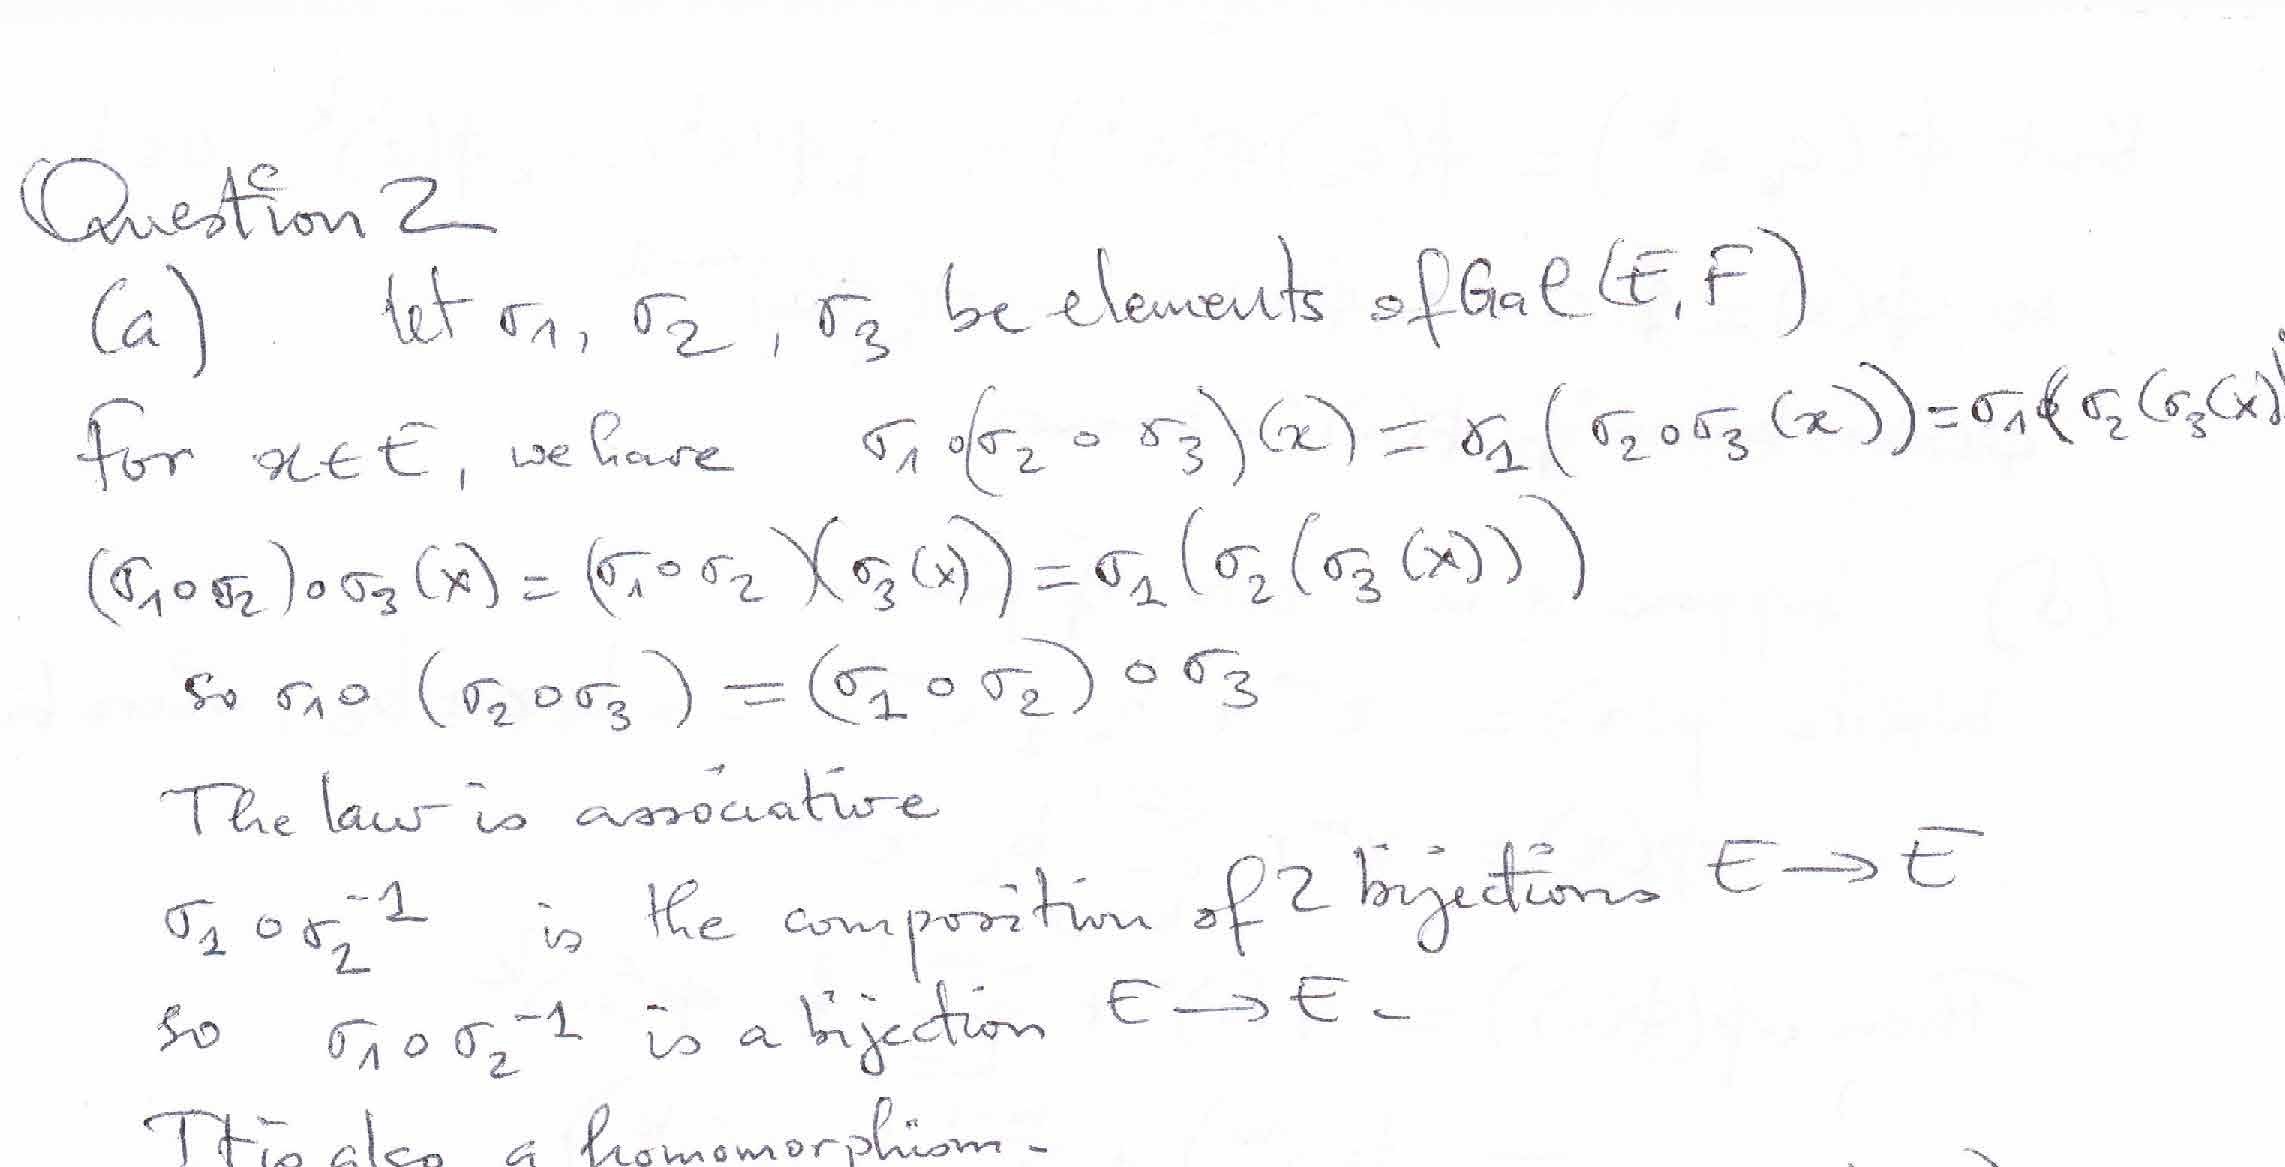 Question 2
(a) let σ1, σ2, σ3 be elements of Gal(E,F)
for x∈E, we have σ1∘(σ2∘σ3)(x) = σ1(σ2∘σ3(x)) = σ1(σ2(σ3(x))
(σ1∘σ2)∘σ3(x) = (σ1∘σ2)(σ3(x)) = σ1(σ2(σ3(x)))
so σ1∘(σ2∘σ3) = (σ1∘σ2)∘σ3
The law is associative
σ1∘σ2⁻¹ is the composition of 2 bijections E→E
so σ1∘σ2⁻¹ is a bijection E→E.
It is also a homomorphism.